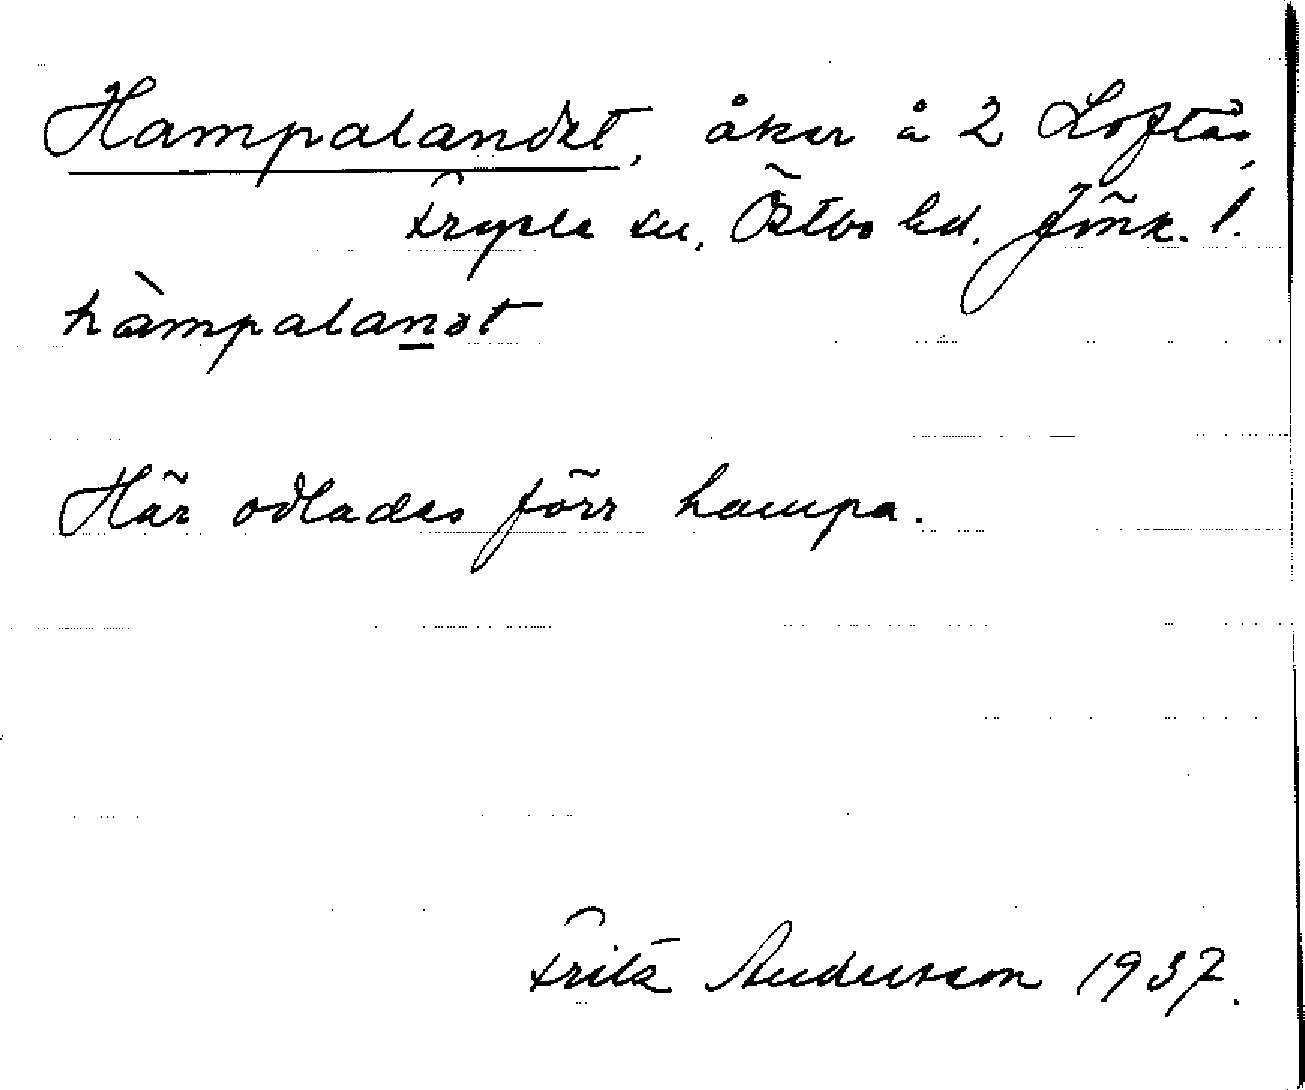 Hampalandet, åker å 2 Loftås,
Fryele sn, Östbo hd. Jönk. l.
hàmpalanət
Här odlades förr hampa.
Fritz Andersson 1937.